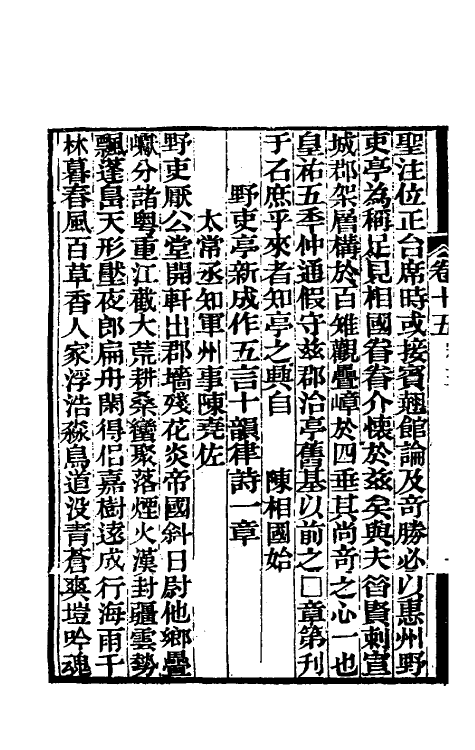 聖注位正台席時或接賓翹館論及奇勝必以惠州野
吏亭為稱足見相國眷眷介懷於茲矣與夫昝賁刺宣
城郡架層構於百雉觀疊嶂於四垂其尚奇之心一也
皇祐五季仲通假守兹郡治亭舊基以前之□章第刊
于石庶乎來者知亭之興自 陳相國始
野吏亭新成作五言十韻律詩一章
太常丞知軍州事陳堯佐
野吏厭公堂開軒出郡墻殘花炎帝國斜日尉他鄉疊
巘分諸粤重江截大荒耕桑蠻聚落煙火漢封疆雲勢
飄蓬島天形壓夜郎扁舟閑得侶嘉樹遠成行海雨千
林暮春風百草香人家浮浩淼鳥道没青蒼爽塏吟魂
卷十五